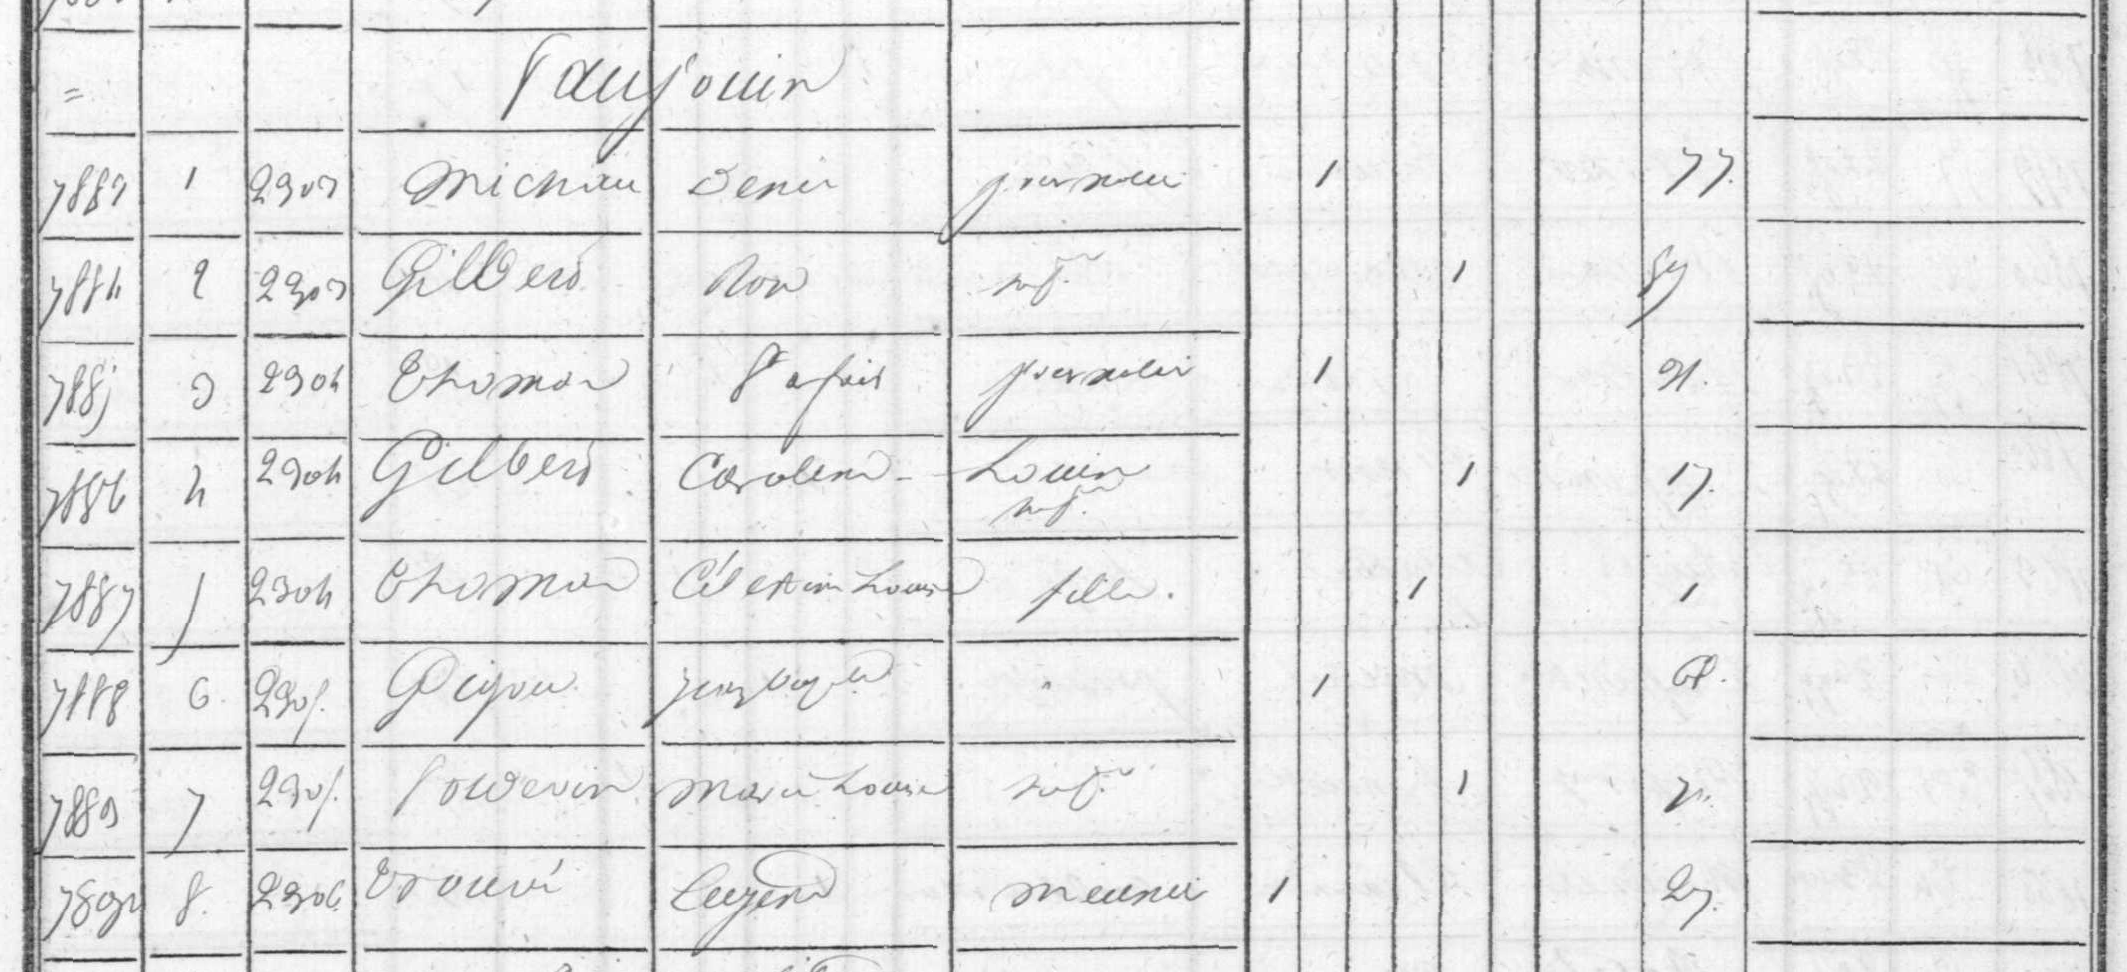 = Faujouin
7883 1 2303 Michau Denis journalier 1 77.
7884 2 2303 Gilbert sa fe 1
7885 3 2304 Thomas Parfait journalier 1 21.
7886 4 2304 Gilbert Caroline Louise sa fe 1 17.
7887 5 2304 Thomas Célestine Louise fille. 1 1
7888 6 2305 1
7889 7 2305 Marie Louise sa fe 1
7890 8 2306 Trouvé Eugène meunier 1 27.